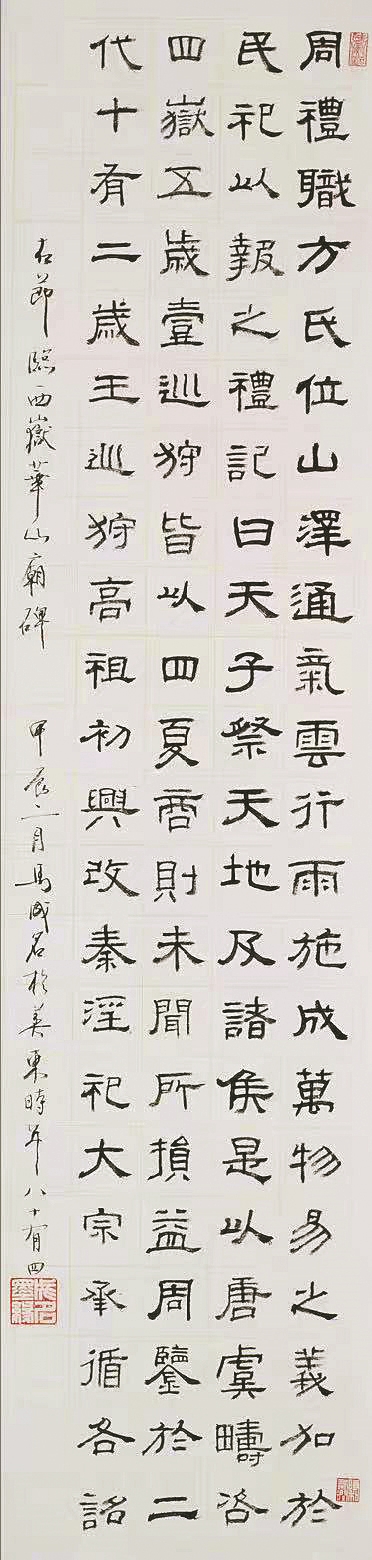 周禮職方氏位山澤通氣雲行雨施成萬物易之義加於
民祀以報之禮記曰天子祭天地及諸侯是以唐虞疇咨
四嶽五歲壹巡狩皆以四夏商則未聞所損益周鑒於二
代十有二歲王巡狩高祖初興改秦淫祀大宗承循各詔
右節臨西嶽華山廟碑 甲辰二月馬成名於美東時年八十有四